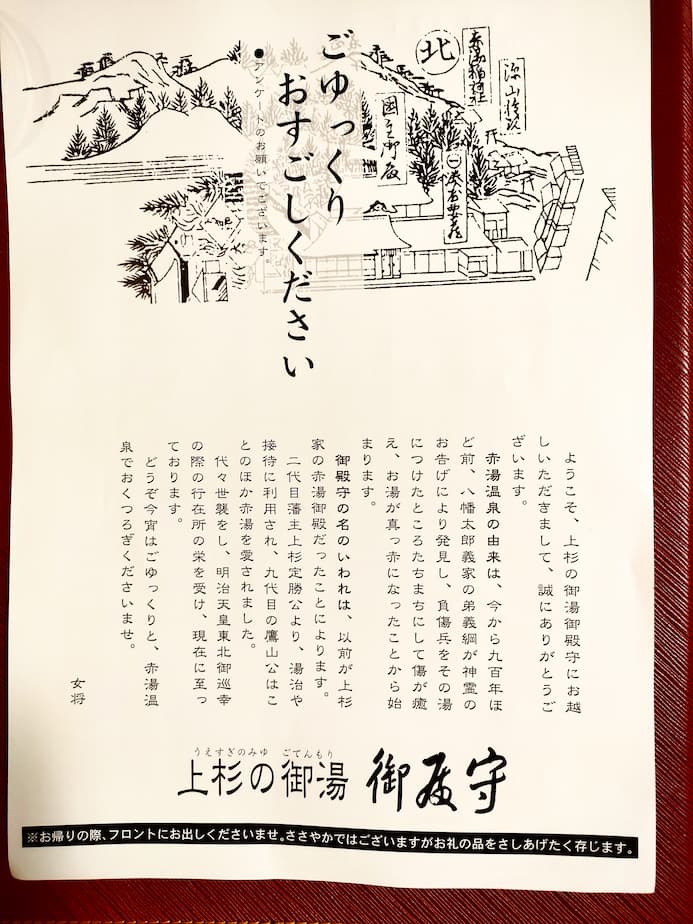 ごゆっくり
おすごしください
●アンケートのお願いでございます。
北
赤湯稲荷社
御殿守
ようこそ、上杉の御湯御殿守にお越
しいただきまして、誠にありがとうご
ざいます。
赤湯温泉の由来は、今から九百年ほ
ど前、八幡太郎義家の弟義綱が神霊の
お告げにより発見し、負傷兵をその湯
につけたところたちまちにして傷が癒
え、お湯が真っ赤になったことから始
まります。
御殿守の名のいわれは、以前が上杉
家の赤湯御殿だったことによります。
二代目藩主上杉定勝公より、湯治や
接待に利用され、九代目の鷹山公はこ
とのほか赤湯を愛されました。
代々世襲をし、明治天皇東北御巡幸
の際の行在所の栄を受け、現在に至っ
ております。
どうぞ今宵はごゆっくりと、赤湯温
泉でおくつろぎくださいませ。
女将
うえすぎのみゆ ごてんもり
上杉の御湯 御殿守
※お帰りの際、フロントにお出しくださいませ。ささやかではございますがお礼の品をさしあげたく存じます。